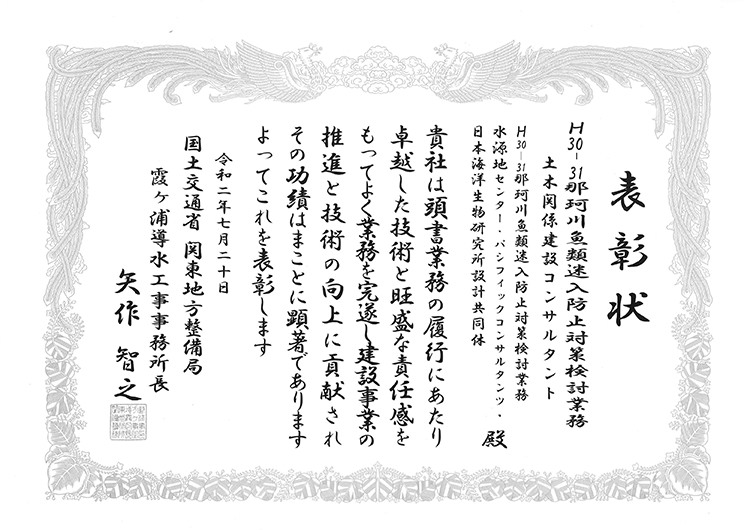 表彰状
H30-31那珂川魚類迷入防止対策検討業務
土木関係建設コンサルタント
H30-31那珂川魚類迷入防止対策検討業務
水源地センター・パシフィックコンサルタンツ・
日本海洋生物研究所設計共同体
殿
貴社は頭書業務の履行にあたり
卓越した技術と旺盛な責任感を
もってよく業務を完遂し建設事業の
推進と技術の向上に貢献され
その功績はまことに顕著であります
よってこれを表彰します
令和二年七月二十日
国土交通省 関東地方整備局
霞ヶ浦導水工事事務所長
矢作 智之